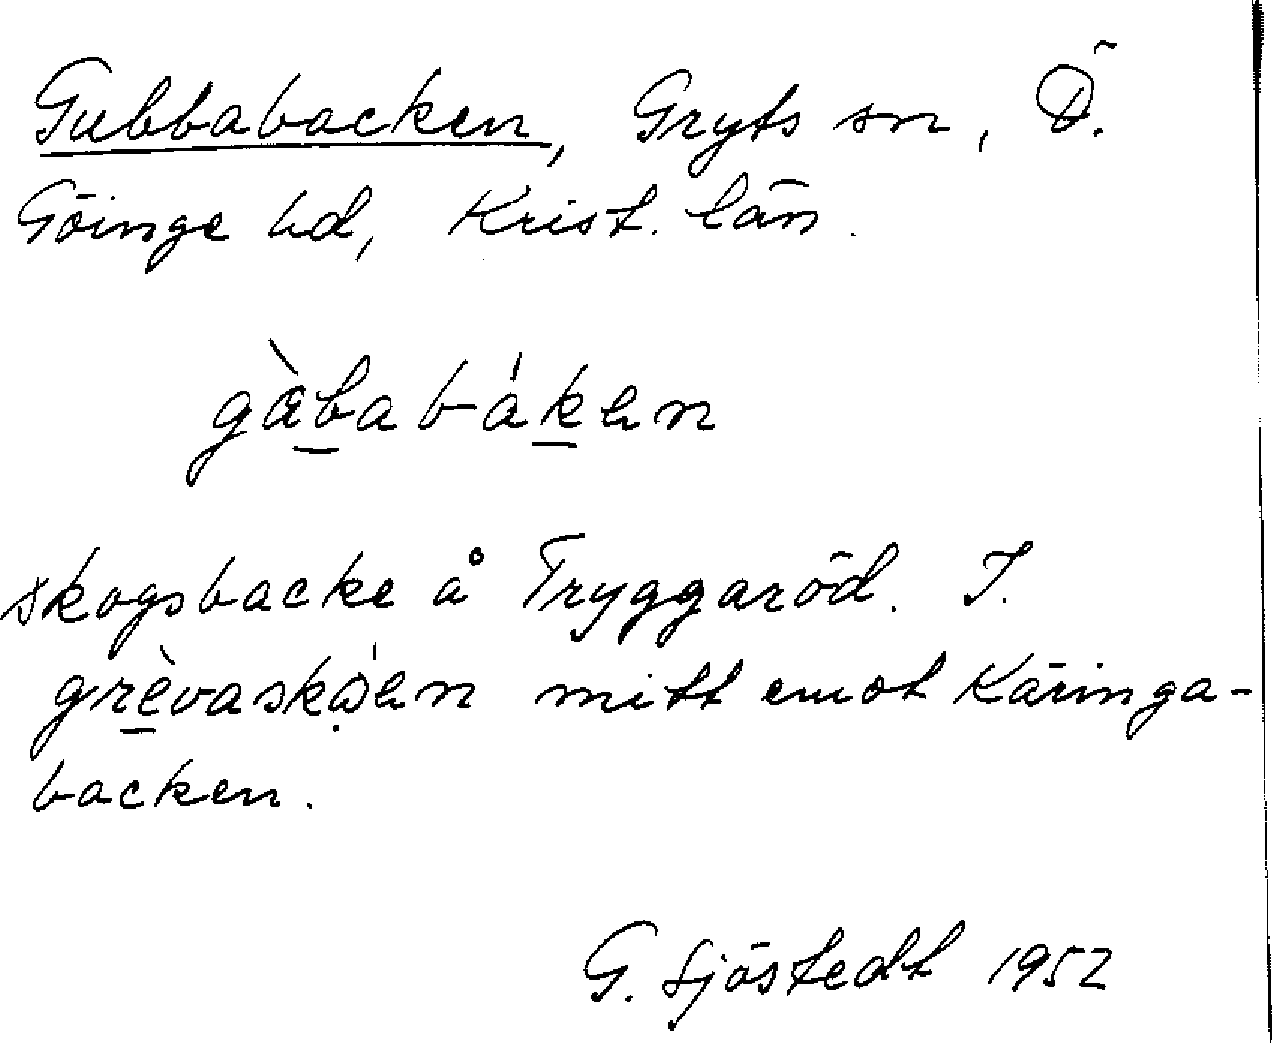 Gubbabacken, Gryts sn, Ö.
Göinge hd, Krist. län.
gàbabáken
skogsbacke å Tryggaröd. I.
grèvaskòen mitt emot Käringa-
backen.
G. Sjöstedt 1952